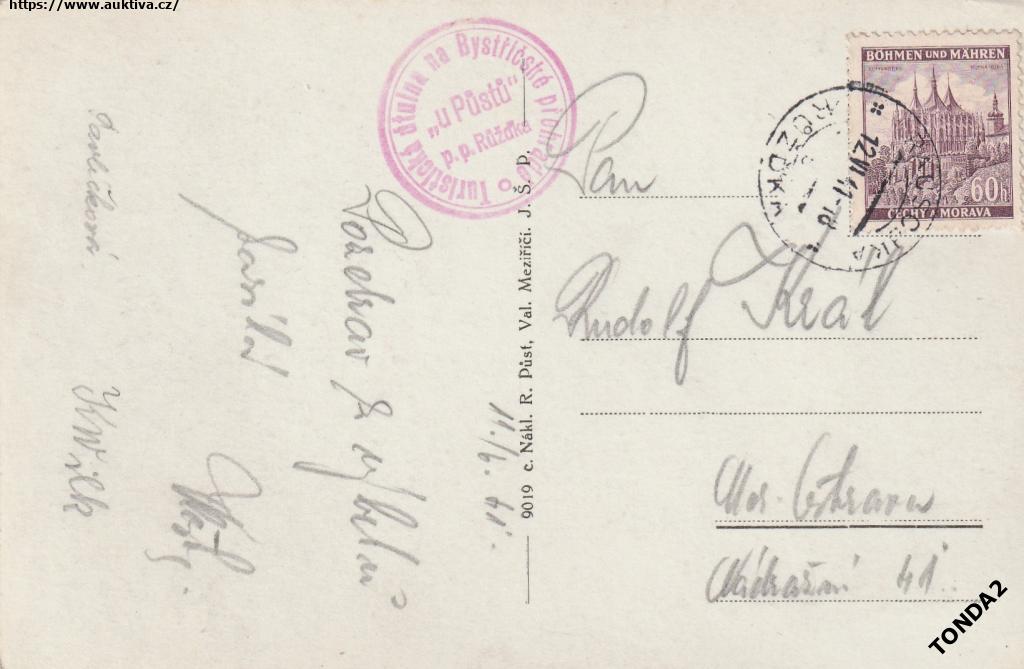 https://www.auktiva.cz/
Turistická útulna na Bystřičské přehradě
"U Půstů"
p.p. Růžďka
BÖHMEN UND MÄHREN
60h
ČECHY A MORAVA
12.VI.41-18
RUŽDKA
Pan
Rudolf Král
Mor. Ostrava
Nádražní 41.
9019 c. Nákl. R. Půst, Val. Meziříčí. J. Š. P.
11./6. 41.
Pozdrav z výletu
Jarka
TONDA2